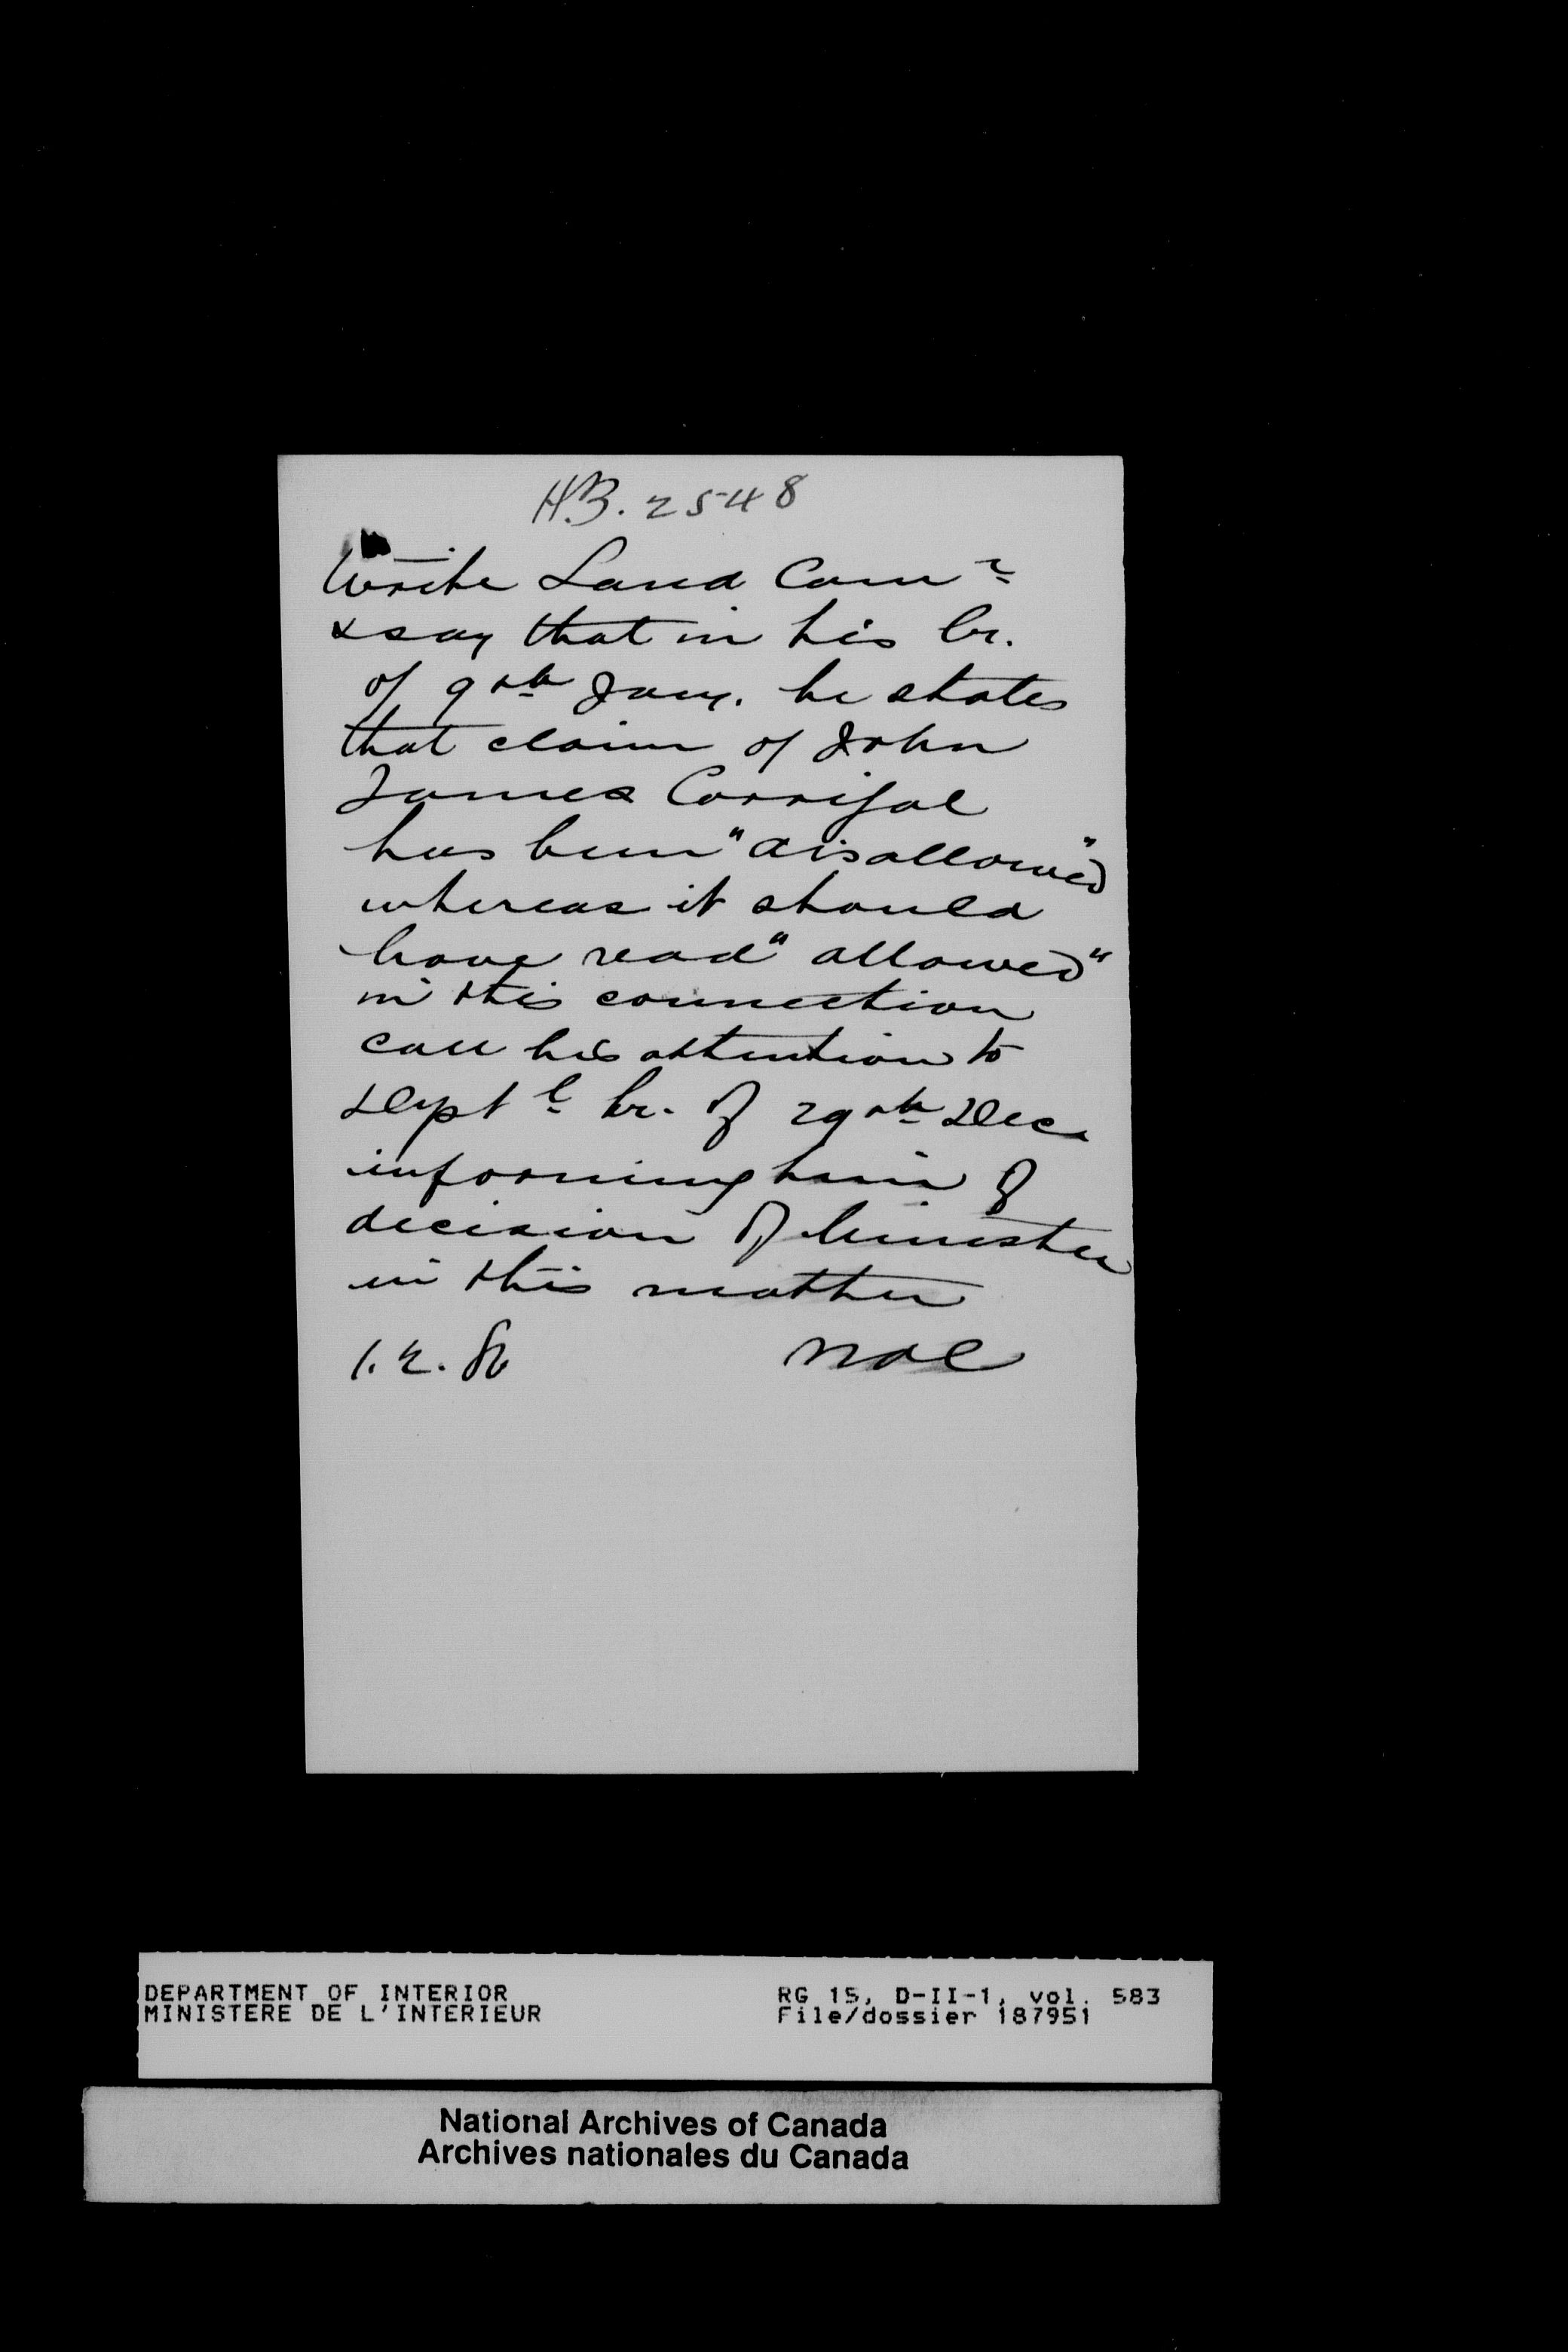 H.B. 2548
Write Land Comr
& say that in his lr.
of 9th Jany. he states
that claim of John
James Corrigal
has been "disallowed"
whereas it should
have read "allowed"
in this connection
call his attention to
Deptl lr. of 29th Dec.
informing him of
decision of Minister
in this matter
1.2.86
DEPARTMENT OF INTERIOR
MINISTERE DE L'INTERIEUR
RG 15, D-II-1, vol. 583
File/dossier 187951
National Archives of Canada
Archives nationales du Canada